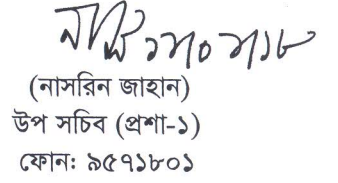 (নাসরিন জাহান)
উপ সচিব (প্রশা-১)
ফোন: ৯৫৭১৮০১